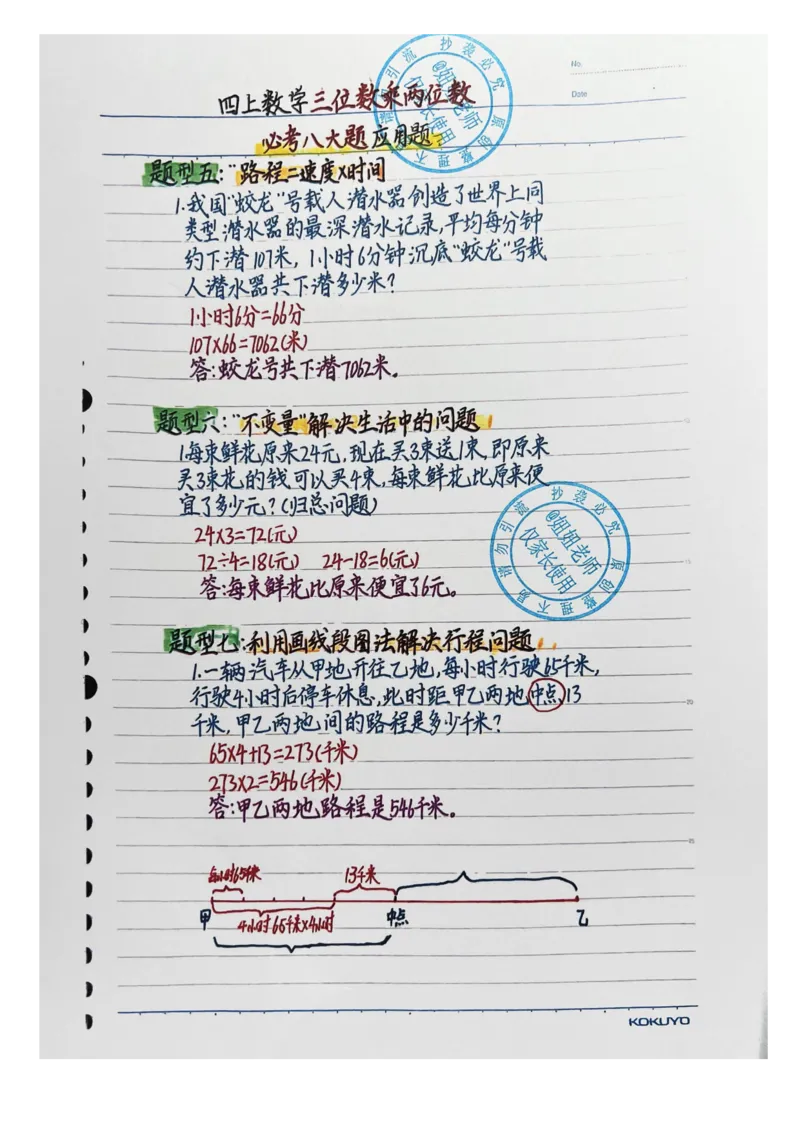 No.
Date
四上数学三位数乘两位数
必考八大题应用题
题型五:"路程=速度×时间
1.我国"蛟龙"号载人潜水器创造了世界上同
类型潜水器的最深潜水记录,平均每分钟
约下潜107米,1小时6分钟沉底"蛟龙"号载
人潜水器共下潜多少米?
1小时6分=66分
107×66=7062(米)
答:蛟龙号共下潜7062米。
题型六:"不变量"解决生活中的问题
1.每束鲜花原来24元,现在买3束送1束,即原来
买3束花的钱可以买4束,每束鲜花比原来便
宜了多少元?(归总问题)
24×3=72(元)
72÷4=18(元) 24-18=6(元)
答:每束鲜花比原来便宜了6元。
抄袭必究 原创整理不易 请勿引流
@妞妞老师
仅家长使用
题型七:利用画线段图法解决行程问题
1.一辆汽车从甲地开往乙地,每小时行驶65千米,
行驶4小时后停车休息,此时距甲乙两地中点13
千米,甲乙两地间的路程是多少千米?
65×4+13=273(千米)
273×2=546(千米)
答:甲乙两地路程是546千米。
每小时65千米 13千米
甲 4小时65千米×4小时 中点 乙
KOKUYO